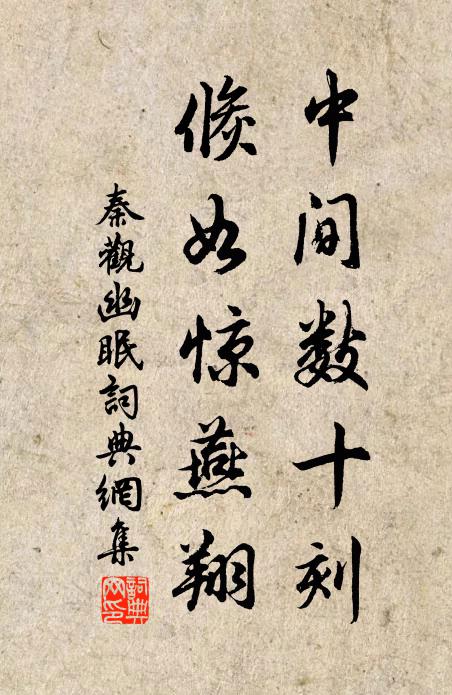 中间数十刻
倏如惊燕翔
秦觀幽眠詞典網集
詞典网印